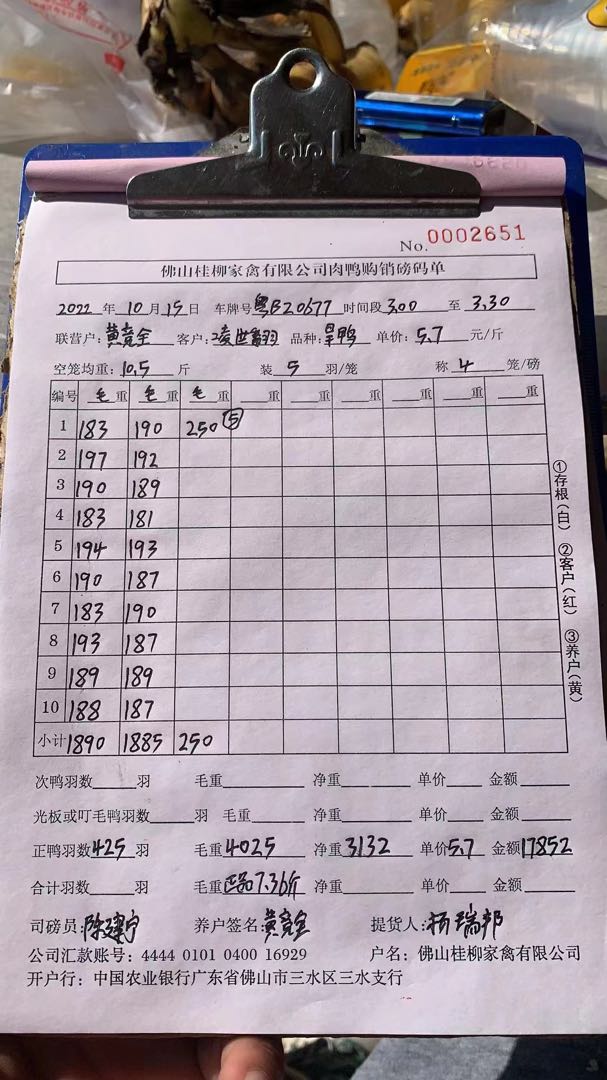 No. 0002651
佛山桂柳家禽有限公司肉鸭购销磅码单
2022 年 10 月 15 日 车牌号 粤B20577 时间段 3.00 至 3.30
联营户: 黄竞全 客户: 凌世翻羽 品种: 旱鸭 单价: 5.7 元/斤
空笼均重: 10.5 斤 装 5 羽/笼 称 4 笼/磅
编号 毛 重 毛 重 毛 重 重 重 重 重 重 重
1 183 190 250 ⑤
2 197 192
3 190 189
4 183 181
5 194 193
6 190 187
7 183 190
8 193 187
9 189 189
10 188 187
小计 1890 1885 250
①存根(白) ②客户(红) ③养户(黄)
次鸭羽数 羽 毛重 净重 单价 金额
光板或叮毛鸭羽数 羽 毛重 净重 单价 金额
正鸭羽数 425 羽 毛重 4025 净重 3132 单价 5.7 金额 17852
合计羽数 羽 毛重 正品7.36斤 净重 单价 金额
司磅员: 陈建宁 养户签名: 黄竞全 提货人: 杨瑞邦
公司汇款账号: 4444 0101 0400 16929 户名: 佛山桂柳家禽有限公司
开户行: 中国农业银行广东省佛山市三水区三水支行